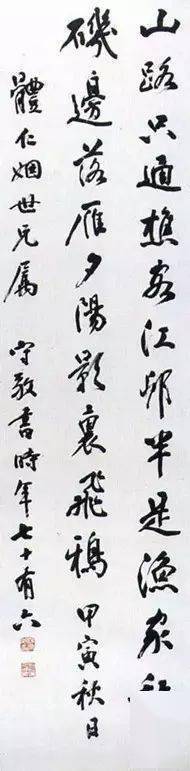 山路只通樵客江邨半是漁家
磯邊落雁夕陽影裏飛鴉 甲寅秋日
體仁姻世兄屬 守敬書時年七十有六